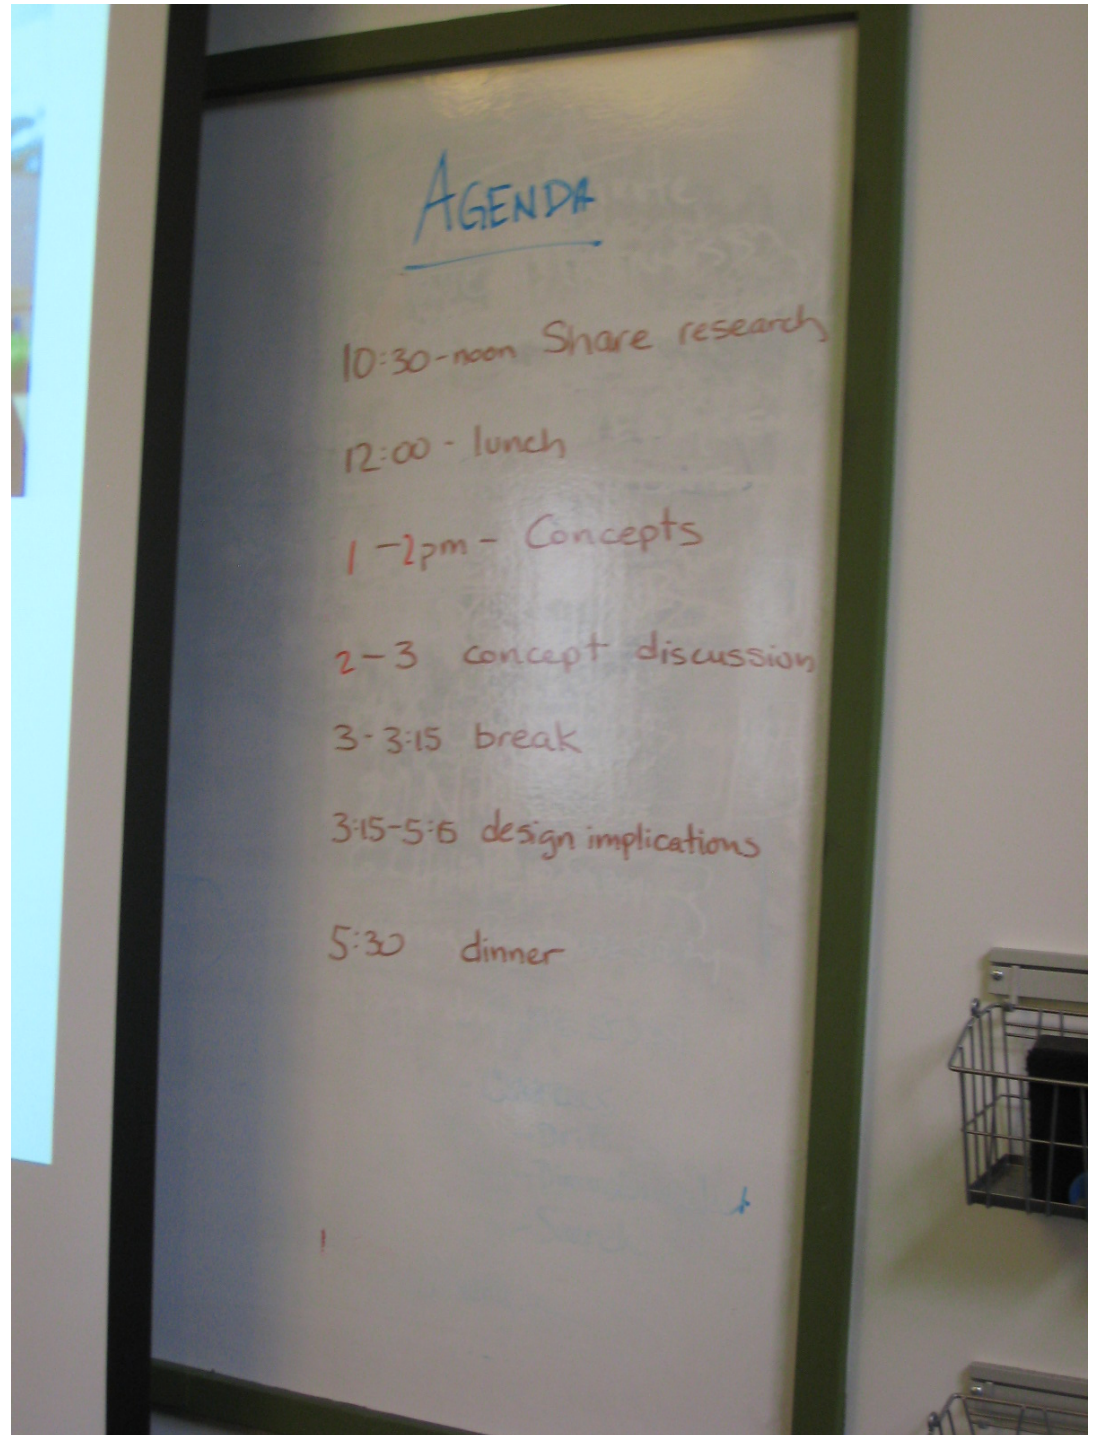 AGENDA
10:30-noon Share research
12:00 - lunch
1 - 2pm - Concepts
2 - 3 concept discussion
3 - 3:15 break
3:15-5:6 design implications
5:30 dinner